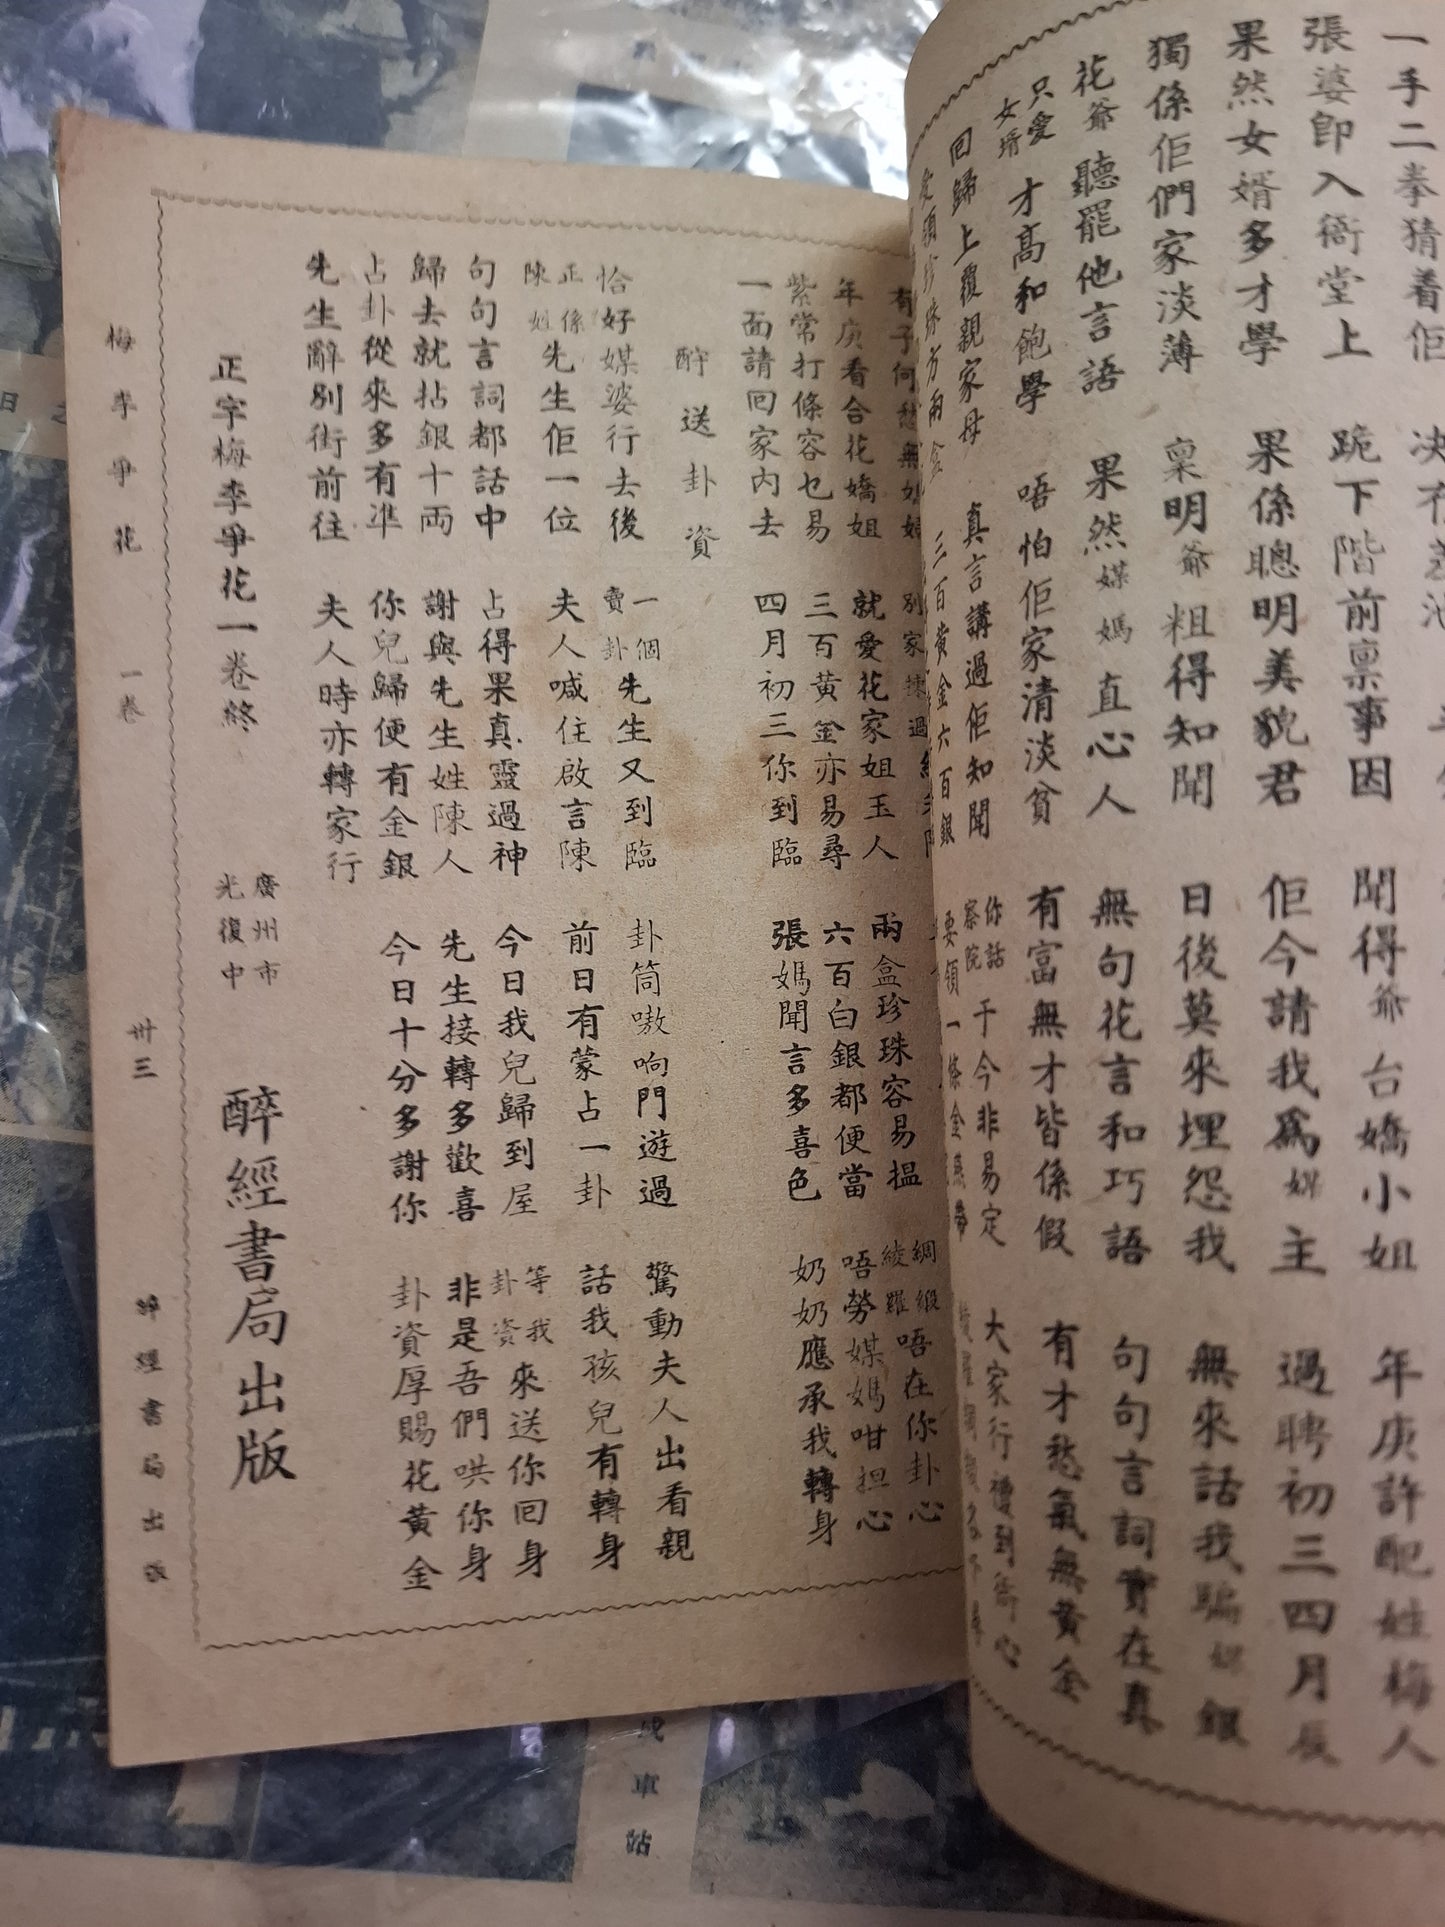 一手二拳猜着佢
張婆即入衙堂上 跪下階前禀事因 聞得爺台嬌小姐 年庚許配姓梅人
果然女婿多才學 果係聰明美貌君 佢今請我為奴主 過聘初三四月辰
獨係佢們家淡薄 稟明爺粗得知聞 日後莫來埋怨我 無來話我騙奴銀
花爺聽罷他言語 果然媒媽直心人 無句花言和巧語 句句言詞實在真
只愛女壻才高和飽學 唔怕佢家清淡貧 有富無才皆係假 有才愁氣無黃金
回歸上覆親家母 真言講過佢知聞 你話察院千今非易定 大家行禮到衙心
三百黃金六百銀 要領一條金
有子何愁無 別家揀過
年庚看合花嬌姐 就愛花家姐玉人 兩盒珍珠容易搵 綢緞綾羅唔在你卦心
紫常打條容乜易 三百黃金亦易尋 六百白銀都便當 唔勞媒媽咁担心
一面請回家內去 四月初三你到臨 張媽聞言多喜色 奶奶應承我轉身
酧送卦資
恰好媒婆行去後 一個賣卦先生又到臨 卦筒嗷响門遊過 驚動夫人出看親
正係陳姓先生佢一位 夫人喊住啟言陳 前日有蒙占一卦 話我孩兒有轉身
句句言詞都話中 占得果真靈過神 今日我兒歸到屋 等我卦資來送你回身
歸去就拈銀十両 謝與先生姓陳人 先生接轉多歡喜 非是吾們哄你身
占卦從來多有准 你兒歸便有金銀 今日十分多謝你 卦資厚賜花黃金
先生辭別街前往 夫人時亦轉家行
正字梅李爭花一卷終 廣州市光復中 醉經書局出版
梅李爭花 一卷 卅三 醉經書局出版
車站